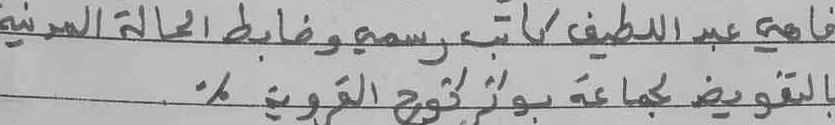 فاهي عبد اللطيف كاتب رسمي وضابط الحالة المدنية
بالتفويض لجماعة بوتركوح القروية ./.